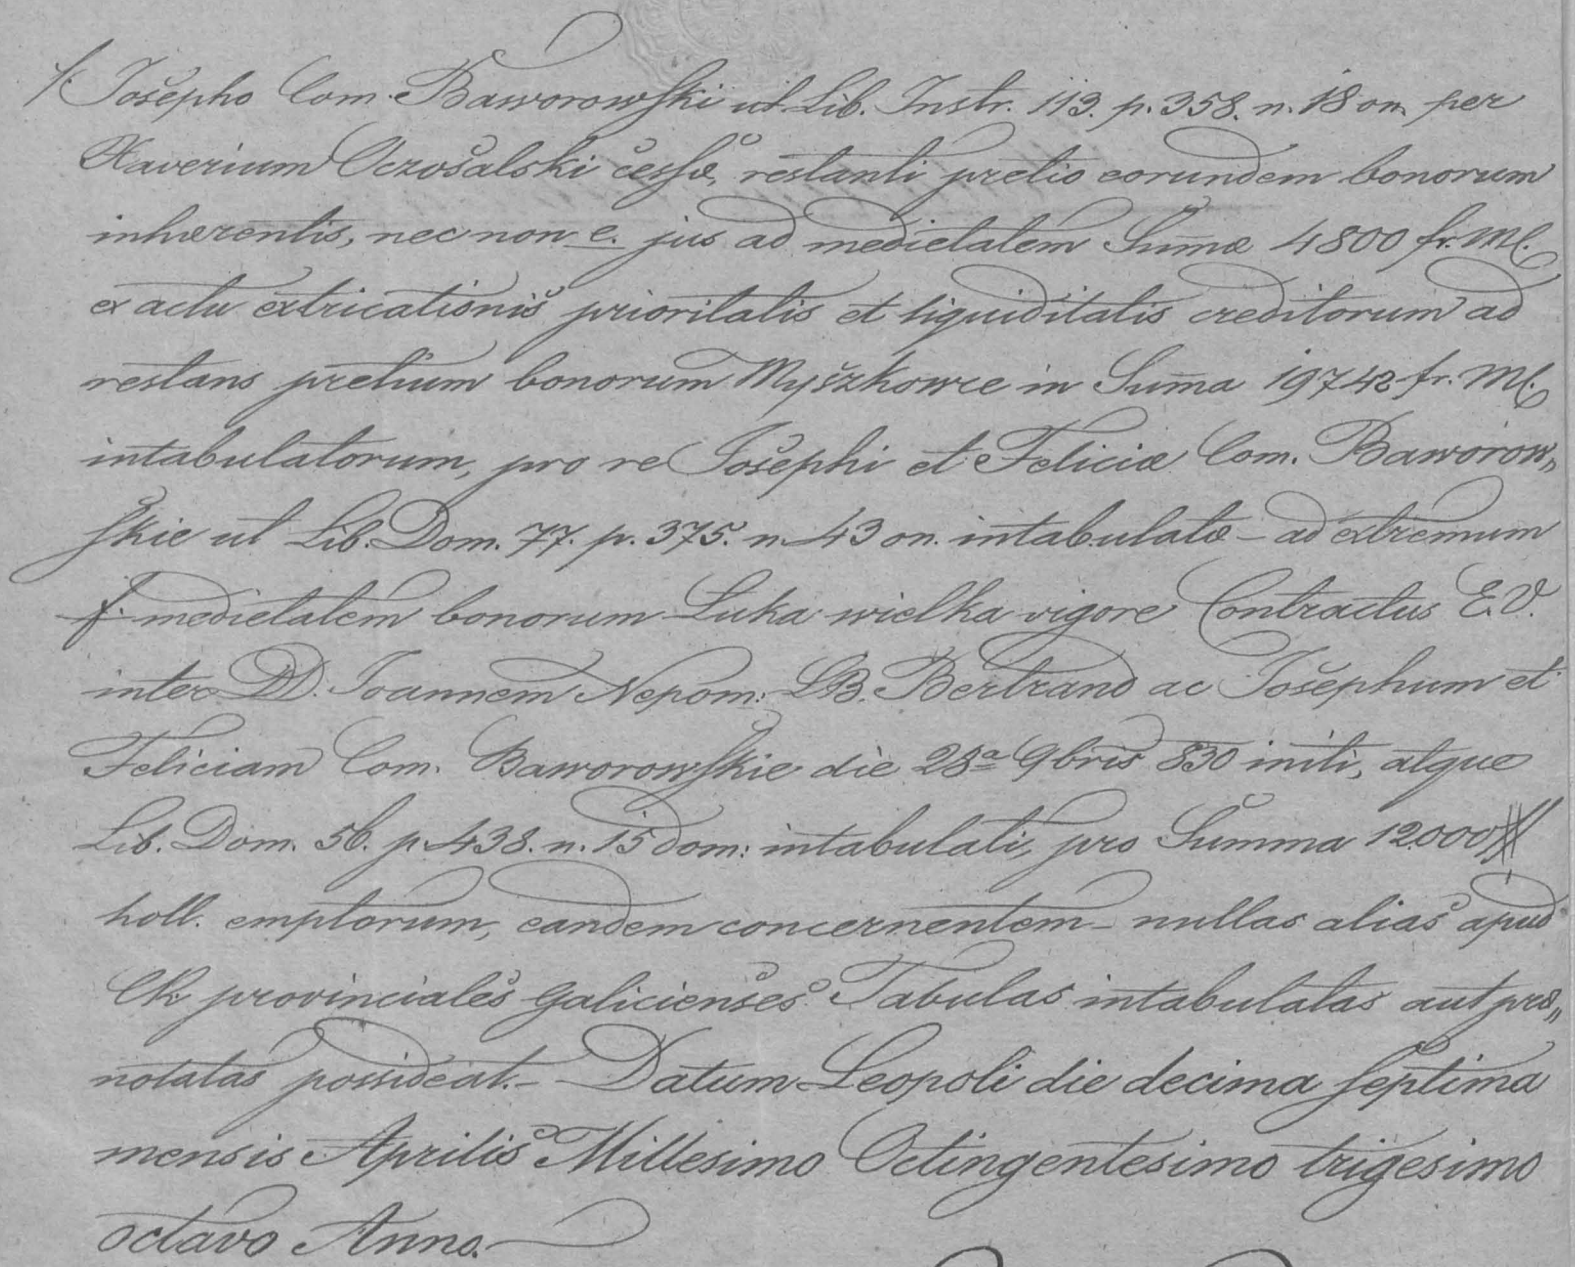 /: Josepho Com. Baworowski ut Lib. Instr. 113. p. 358. n. 18 on. per
Xaverium Oczosalski cessæ, restanti pretio eorundem bonorum
inhærentis, nec non e. jus ad medietatem Sum̄æ 4800 fr. M.
ex actu extricationis prioritatis et liquiditatis creditorum ad
restans pretium bonorum Myszkowce in Sum̄a 19742 fr. M.
intabulatorum, pro re Josephi et Feliciæ Com. Baworow„
skie ut Lib. Dom. 77. p. 375. n 43 on. intabulatæ – ad extremum
f. medietatem bonorum Luka wielka vigore Contractus E.V.
inter DD. Joannem Nepom: LB. Bertrand ac Josephum et
Feliciam Com. Baworowskie die 28a 9bris 830 initi, atque
Lib. Dom. 56. p. 438. n. 15 dom: intabulati, pro Summa 12000 #
holl. emptorum, eandem concernentem – nullas alias apud
CR provinciales Galicienses Tabulas intabulatas aut præ„
notatas possideat. – Datum Leopoli die decima septima
mensis Aprilis Millesimo Octingentesimo trigesimo
octavo Anno.